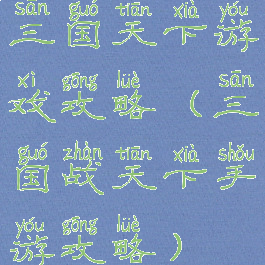 sān guó tiān xià yóu
三国天下游
xì gōng lüè sān
戏攻略（三
guó zhàn tiān xià shǒu
国战天下手
yóu gōng lüè
游攻略）